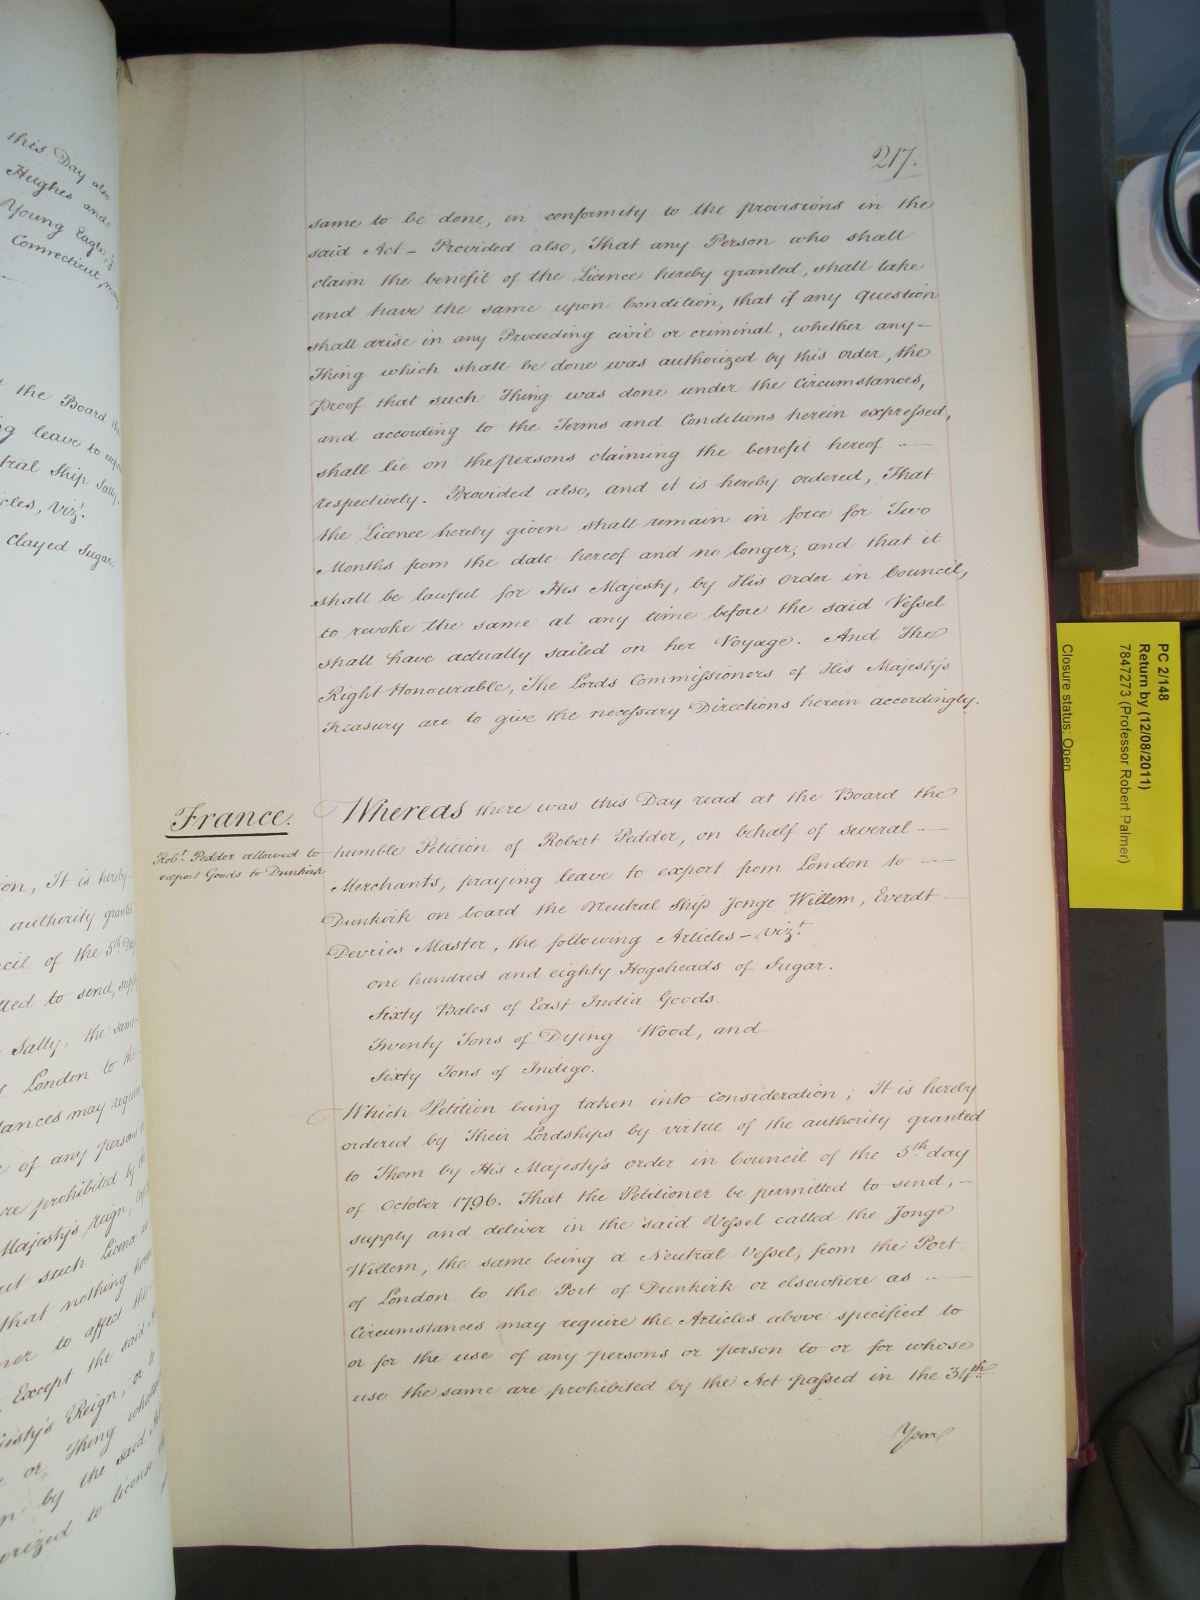 this Day also
Hughes and
Young Eagle,
Connecticut,
the Board
leave to
Ship Sally
viz.t
clayed Sugar.
It is hereby
authority granted
of the 5th Day
to send,
Sally, the same
London to the
may require
of any persons
prohibited by
Majesty's reign,
such Licence
that nothing
to affect the
Except the said
Reign, or
or Thing
by the said
to license
217.
same to be done, in conformity to the provisions in the
said Act – Provided also, That any Person who shall
claim the benefit of the Licence hereby granted, shall take
and have the same upon Condition, that if any Question
shall arise in any Proceeding civil or criminal, whether any–
Thing which shall be done was authorized by this order, the
Proof that such Thing was done under the Circumstances,
and according to the Terms and Conditions herein expressed,
shall lie on the persons claiming the benefit hereof –
respectively. Provided also, and it is hereby ordered, That
the Licence hereby given shall remain in force for Two
Months from the date hereof and no longer; and that it
shall be lawful for His Majesty, by His Order in Council,
to revoke the same at any time before the said Vessel
shall have actually sailed on her Voyage. And The
Right Honourable, The Lords Commissioners of His Majesty's
Treasury are to give the necessary Directions herein accordingly.
France.
Rob.t Pedder allowed to
export Goods to Dunkirk
Whereas there was this Day read at the Board the
humble Petition of Robert Pedder, on behalf of several –
Merchants, praying leave to export from London to –
Dunkirk on board the Neutral Ship Jonge Willem, Everdt –
Devries Master, the following Articles – viz.t
one hundred and eighty Hogsheads of Sugar.
Sixty Bales of East India Goods.
Twenty Tons of Dying Wood, and
Sixty Tons of Indigo.
Which Petition being taken into consideration; It is hereby
ordered by Their Lordships by virtue of the authority granted
to Them by His Majesty's order in Council of the 5th day
of October 1796. That the Petitioner be permitted to send, –
supply and deliver in the said Vessel called the Jonge
Willem, the same being a Neutral Vessel, from the Port
of London to the Port of Dunkirk or elsewhere as –
Circumstances may require the Articles above specified to
or for the use of any persons or person to or for whose
use the same are prohibited by the Act passed in the 34th
Year
PC 2/148
Return by (12/08/2011)
7847273 (Professor Robert Palmer)
Closure status: Open